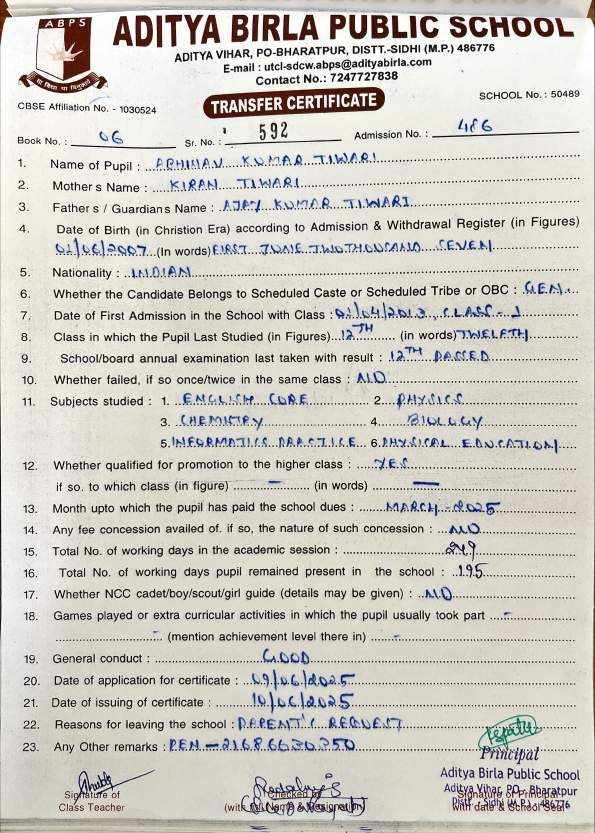 ABPS
ADITYA BIRLA PUBLIC SCHOOL
ADITYA VIHAR, PO-BHARATPUR, DISTT.-SIDHI (M.P.) 486776
E-mail : utcl-sdcw.abps@adityabirla.com
Contact No.: 7247727838
CBSE Affiliation No. - 1030524
TRANSFER CERTIFICATE
SCHOOL No. : 50489
Book No. : 06 Sr. No. : 592 Admission No. : 486
1. Name of Pupil : ABHINAV KUMAR TIWARI
2. Mother s Name : KIRAN TIWARI
3. Father s / Guardian s Name : AJAY KUMAR TIWARI
4. Date of Birth (in Christion Era) according to Admission & Withdrawal Register (in Figures)
01/06/2007 (In words) FIRST JUNE TWO THOUSAND SEVEN
5. Nationality : INDIAN
6. Whether the Candidate Belongs to Scheduled Caste or Scheduled Tribe or OBC : GEN.
7. Date of First Admission in the School with Class : 01/04/2013, CLASS - 1
8. Class in which the Pupil Last Studied (in Figures) 12TH (in words) TWELFTH
9. School/board annual examination last taken with result : 12TH PASSED
10. Whether failed, if so once/twice in the same class : NO
11. Subjects studied : 1. ENGLISH CORE 2. PHYSICS
3. CHEMISTRY 4. BIOLOGY
5. INFORMATICS PRACTICE 6. PHYSICAL EDUCATION
12. Whether qualified for promotion to the higher class : YES
if so. to which class (in figure) - (in words) -
13. Month upto which the pupil has paid the school dues : MARCH - 2025
14. Any fee concession availed of. if so, the nature of such concession : NO
15. Total No. of working days in the academic session : 249
16. Total No. of working days pupil remained present in the school : 195
17. Whether NCC cadet/boy/scout/girl guide (details may be given) : NO
18. Games played or extra curricular activities in which the pupil usually took part -
- (mention achievement level there in) -
19. General conduct : GOOD
20. Date of application for certificate : 09/06/2025
21. Date of issuing of certificate : 10/06/2025
22. Reasons for leaving the school : PARENT'S REQUEST
23. Any Other remarks : PEN - 21686630350
Principal
Aditya Birla Public School
Aditya Vihar, PO.- Bharatpur
Distt.- Sidhi (M.P.) 486776
Signature of Class Teacher
Checked by
(with full Name & Designation)
Signature of Principal
with date & School Seal